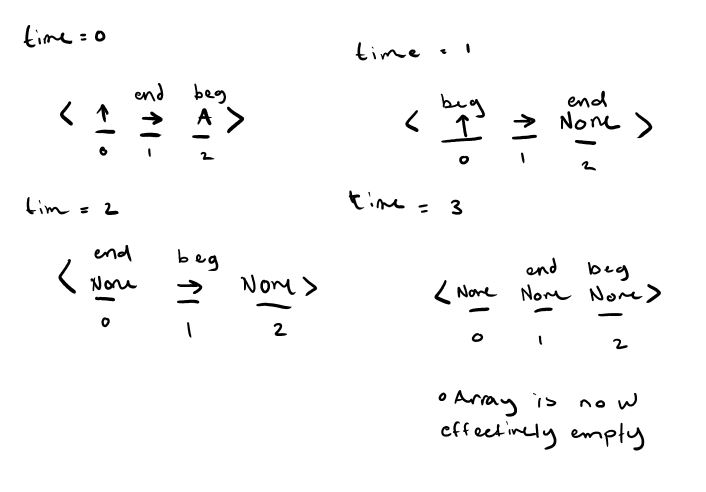 time = 0
end beg
< ↑ → A >
0 1 2
time = 1
beg end
< ↑ → None >
0 1 2
tim = 2
end beg
< None → None >
0 1 2
time = 3
end beg
< None None None >
0 1 2
o Array is now
effectively empty